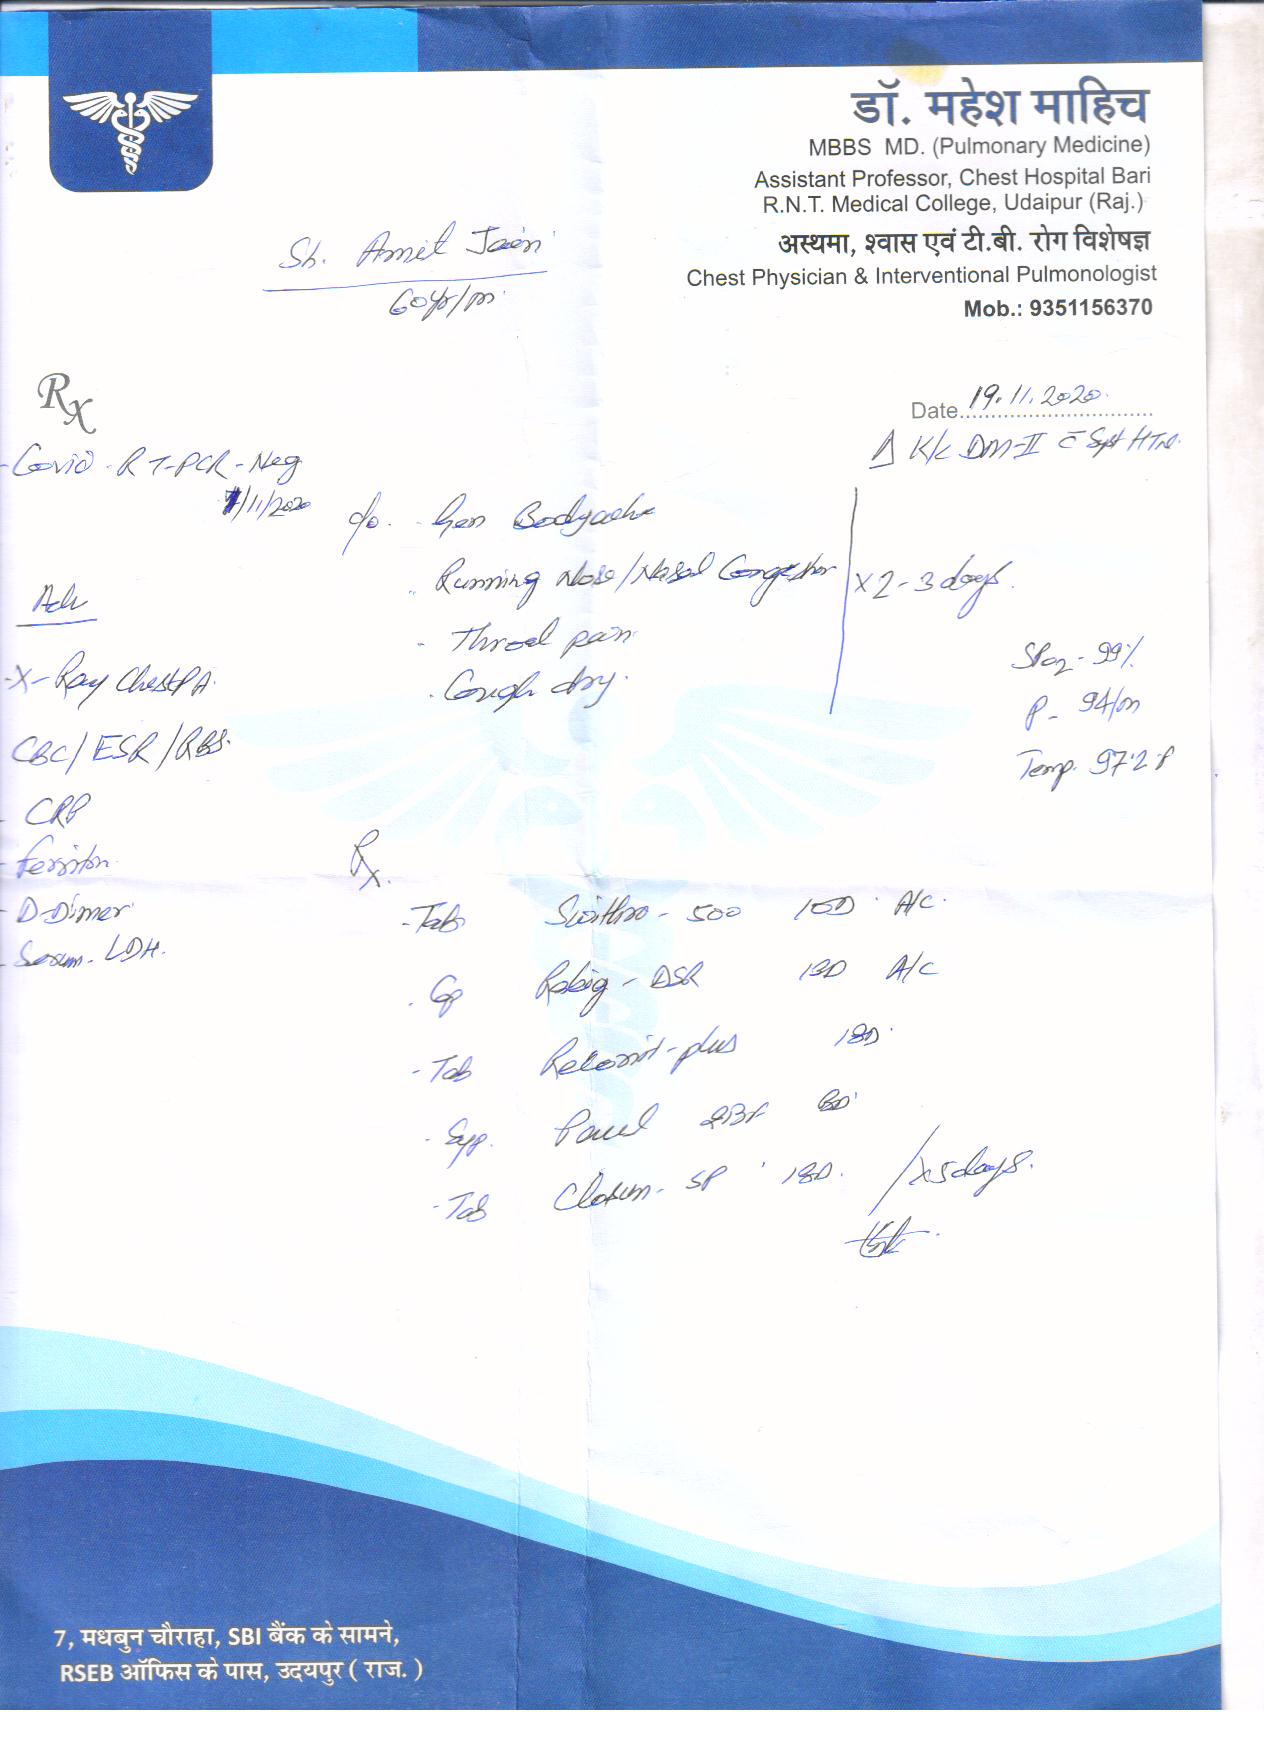 डॉ. महेश माहिच
MBBS MD. (Pulmonary Medicine)
Assistant Professor, Chest Hospital Bari
R.N.T. Medical College, Udaipur (Raj.)
अस्थमा, श्वास एवं टी.बी. रोग विशेषज्ञ
Chest Physician & Interventional Pulmonologist
Mob.: 9351156370
Sh. Amit Jain
60yr/m
Rx
Date 19.11.2020
Δ K/c DM-II c̄ HTN
- Covid - RT-PCR - Neg
/11/2020
c/o. - Gen Bodyache
- Running Nose/Nasal Congestion
- Throat pain
- Cough dry.
x 2-3 days.
SPO2 - 99%
P - 94/m
Temp. 97.2 F
Adv
- X-Ray Chest PA
CBC/ESR/RBS.
- CRP
- Ferritin
- D-Dimer
- Serum LDH.
Rx
- Tab 500 1OD A/c
- Cap DSR 1BD A/c
- Tab plus 1BD
- Syp. BD
- Tab SP 1BD. / x5days.
7, मधबुन चौराहा, SBI बैंक के सामने,
RSEB ऑफिस के पास, उदयपुर ( राज. )